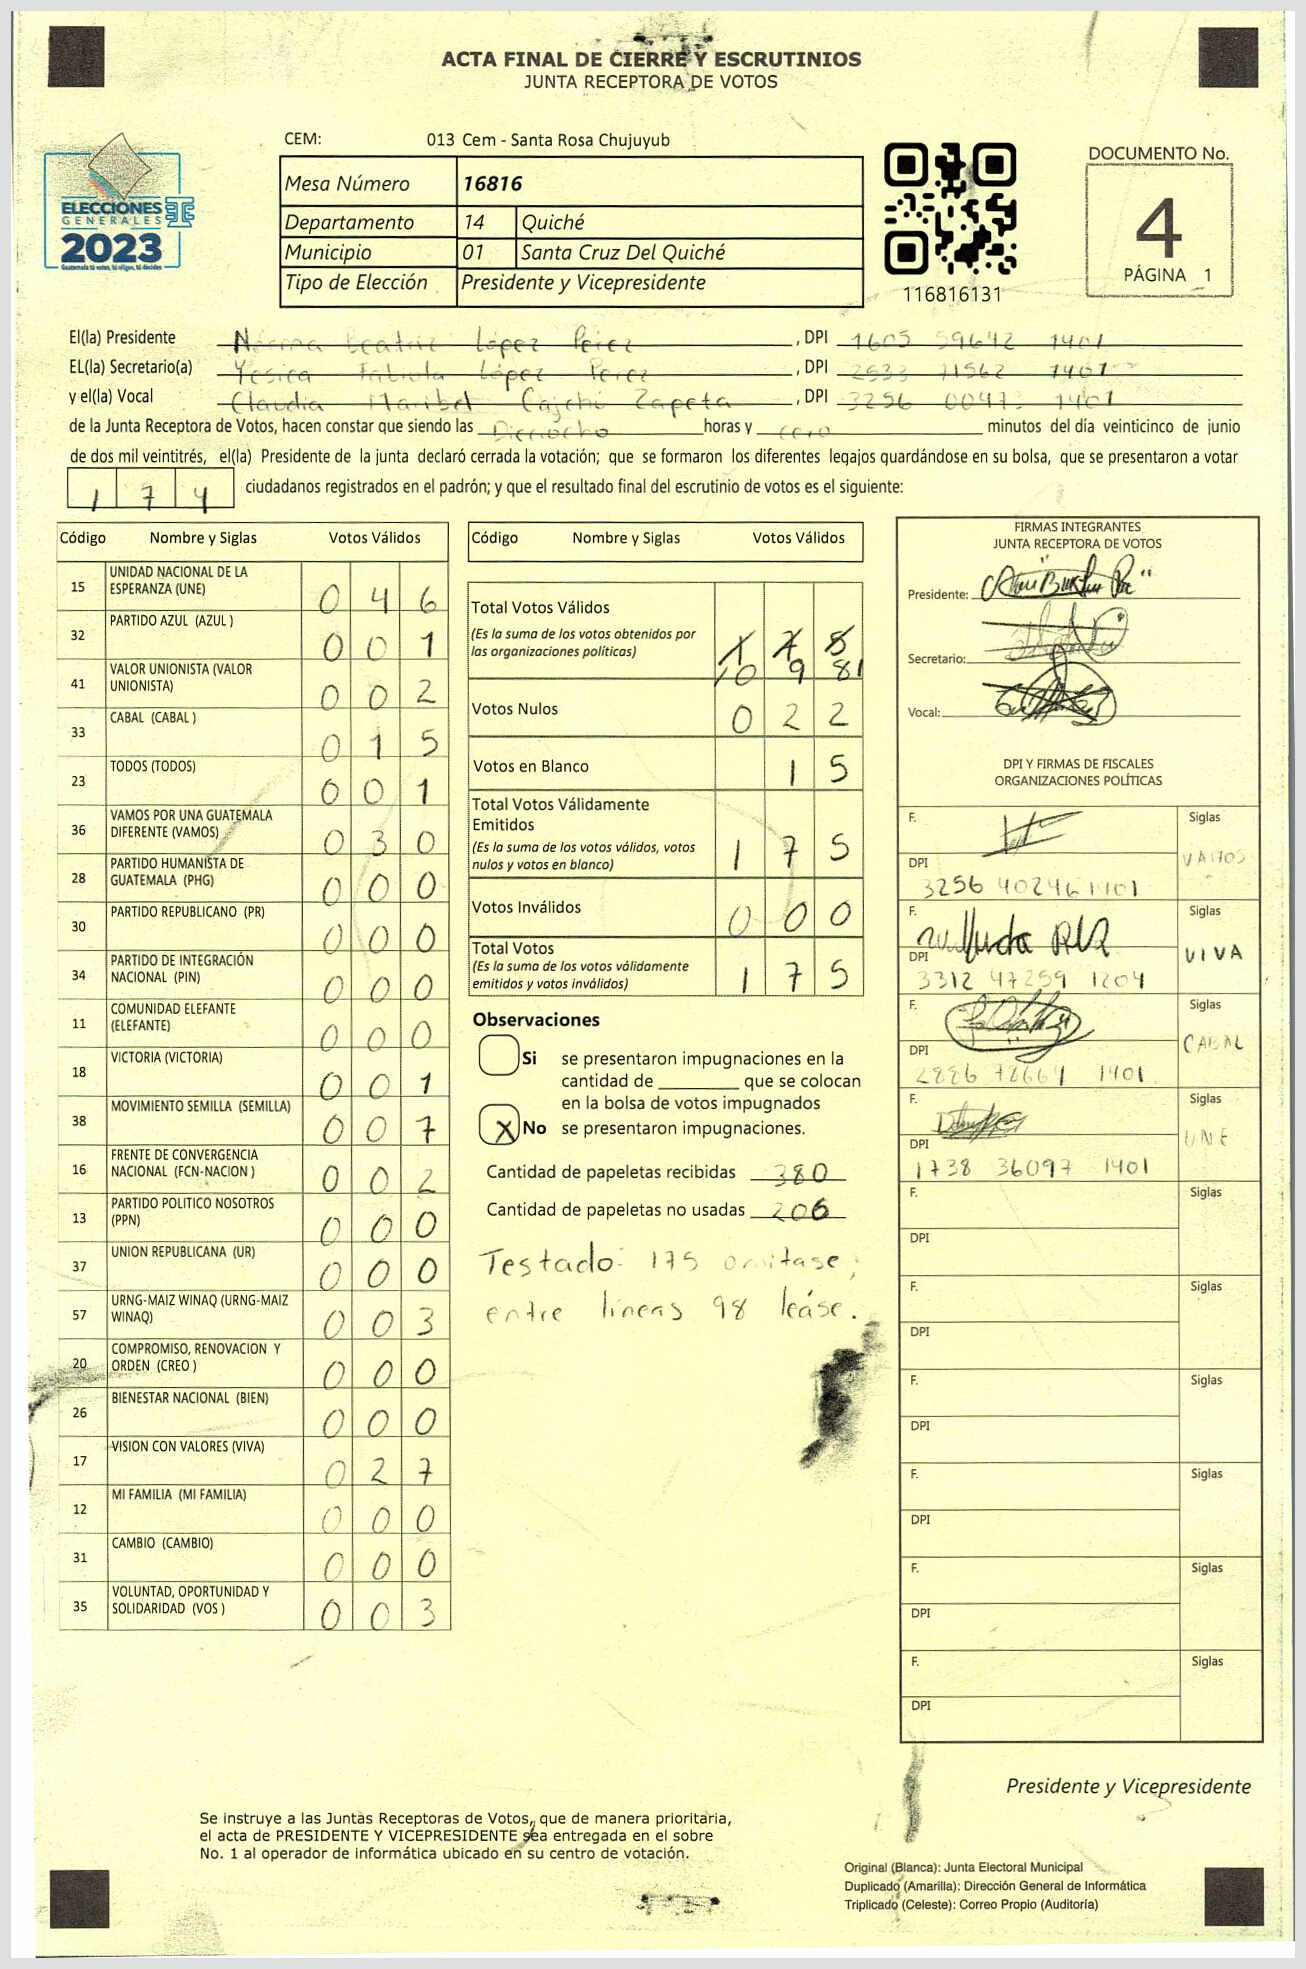 ACTA FINAL DE CIERRE Y ESCRUTINIOS
JUNTA RECEPTORA DE VOTOS
ELECCIONES
GENERALES
2023
Guatemala tú votas, tú eliges, tú decides
CEM: 013 Cem - Santa Rosa Chujuyub
Mesa Número 16816
Departamento 14 Quiché
Municipio 01 Santa Cruz Del Quiché
Tipo de Elección Presidente y Vicepresidente
116816131
DOCUMENTO No.
4
PÁGINA 1
El(la) Presidente Norma Beatriz López Perez, DPI 1605 59642 1401
EL(la) Secretario(a) Yesica Fabiola López Perez, DPI 2533 71562 1401
y el(la) Vocal Claudia Maribel Zapeta, DPI 3256 00473 1401
de la Junta Receptora de Votos, hacen constar que siendo las Dieciocho horas y cero minutos del día veinticinco de junio
de dos mil veintitrés, el(la) Presidente de la junta declaró cerrada la votación; que se formaron los diferentes legajos guardándose en su bolsa, que se presentaron a votar
1 7 4 ciudadanos registrados en el padrón; y que el resultado final del escrutinio de votos es el siguiente:
Código Nombre y Siglas Votos Válidos
15 UNIDAD NACIONAL DE LA ESPERANZA (UNE) 0 4 6
32 PARTIDO AZUL (AZUL ) 0 0 1
41 VALOR UNIONISTA (VALOR UNIONISTA) 0 0 2
33 CABAL (CABAL ) 0 1 5
23 TODOS (TODOS) 0 0 1
36 VAMOS POR UNA GUATEMALA DIFERENTE (VAMOS) 0 3 0
28 PARTIDO HUMANISTA DE GUATEMALA (PHG) 0 0 0
30 PARTIDO REPUBLICANO (PR) 0 0 0
34 PARTIDO DE INTEGRACIÓN NACIONAL (PIN) 0 0 0
11 COMUNIDAD ELEFANTE (ELEFANTE) 0 0 0
18 VICTORIA (VICTORIA) 0 0 1
38 MOVIMIENTO SEMILLA (SEMILLA) 0 0 7
16 FRENTE DE CONVERGENCIA NACIONAL (FCN-NACION ) 0 0 2
13 PARTIDO POLITICO NOSOTROS (PPN) 0 0 0
37 UNION REPUBLICANA (UR) 0 0 0
57 URNG-MAIZ WINAQ (URNG-MAIZ WINAQ) 0 0 3
20 COMPROMISO, RENOVACION Y ORDEN (CREO ) 0 0 0
26 BIENESTAR NACIONAL (BIEN) 0 0 0
17 VISION CON VALORES (VIVA) 0 2 7
12 MI FAMILIA (MI FAMILIA) 0 0 0
31 CAMBIO (CAMBIO) 0 0 0
35 VOLUNTAD, OPORTUNIDAD Y SOLIDARIDAD (VOS ) 0 0 3
Código Nombre y Siglas Votos Válidos
Total Votos Válidos
(Es la suma de los votos obtenidos por
las organizaciones políticas)
1 7 5
9 8
Votos Nulos 0 2 2
Votos en Blanco 1 5
Total Votos Válidamente
Emitidos
(Es la suma de los votos válidos, votos
nulos y votos en blanco)
1 7 5
Votos Inválidos 0 0 0
Total Votos
(Es la suma de los votos válidamente
emitidos y votos inválidos)
1 7 5
Observaciones
Si se presentaron impugnaciones en la
cantidad de ________ que se colocan
en la bolsa de votos impugnados
X No se presentaron impugnaciones.
Cantidad de papeletas recibidas 380
Cantidad de papeletas no usadas 206
Testado: 175 omitase;
entre líneas 98 leáse.
FIRMAS INTEGRANTES
JUNTA RECEPTORA DE VOTOS
Presidente:
Secretario:
Vocal:
DPI Y FIRMAS DE FISCALES
ORGANIZACIONES POLÍTICAS
F. Siglas
VAMOS
DPI
3256 40246 1401
F. Siglas
VIVA
DPI
3312 47259 1204
F. Siglas
CABAL
DPI
2886 78664 1401
F. Siglas
UNE
DPI
1738 36097 1401
F. Siglas
DPI
F. Siglas
DPI
F. Siglas
DPI
F. Siglas
DPI
F. Siglas
DPI
F. Siglas
DPI
Presidente y Vicepresidente
Se instruye a las Juntas Receptoras de Votos, que de manera prioritaria,
el acta de PRESIDENTE Y VICEPRESIDENTE sea entregada en el sobre
No. 1 al operador de informática ubicado en su centro de votación.
Original (Blanca): Junta Electoral Municipal
Duplicado (Amarilla): Dirección General de Informática
Triplicado (Celeste): Correo Propio (Auditoría)